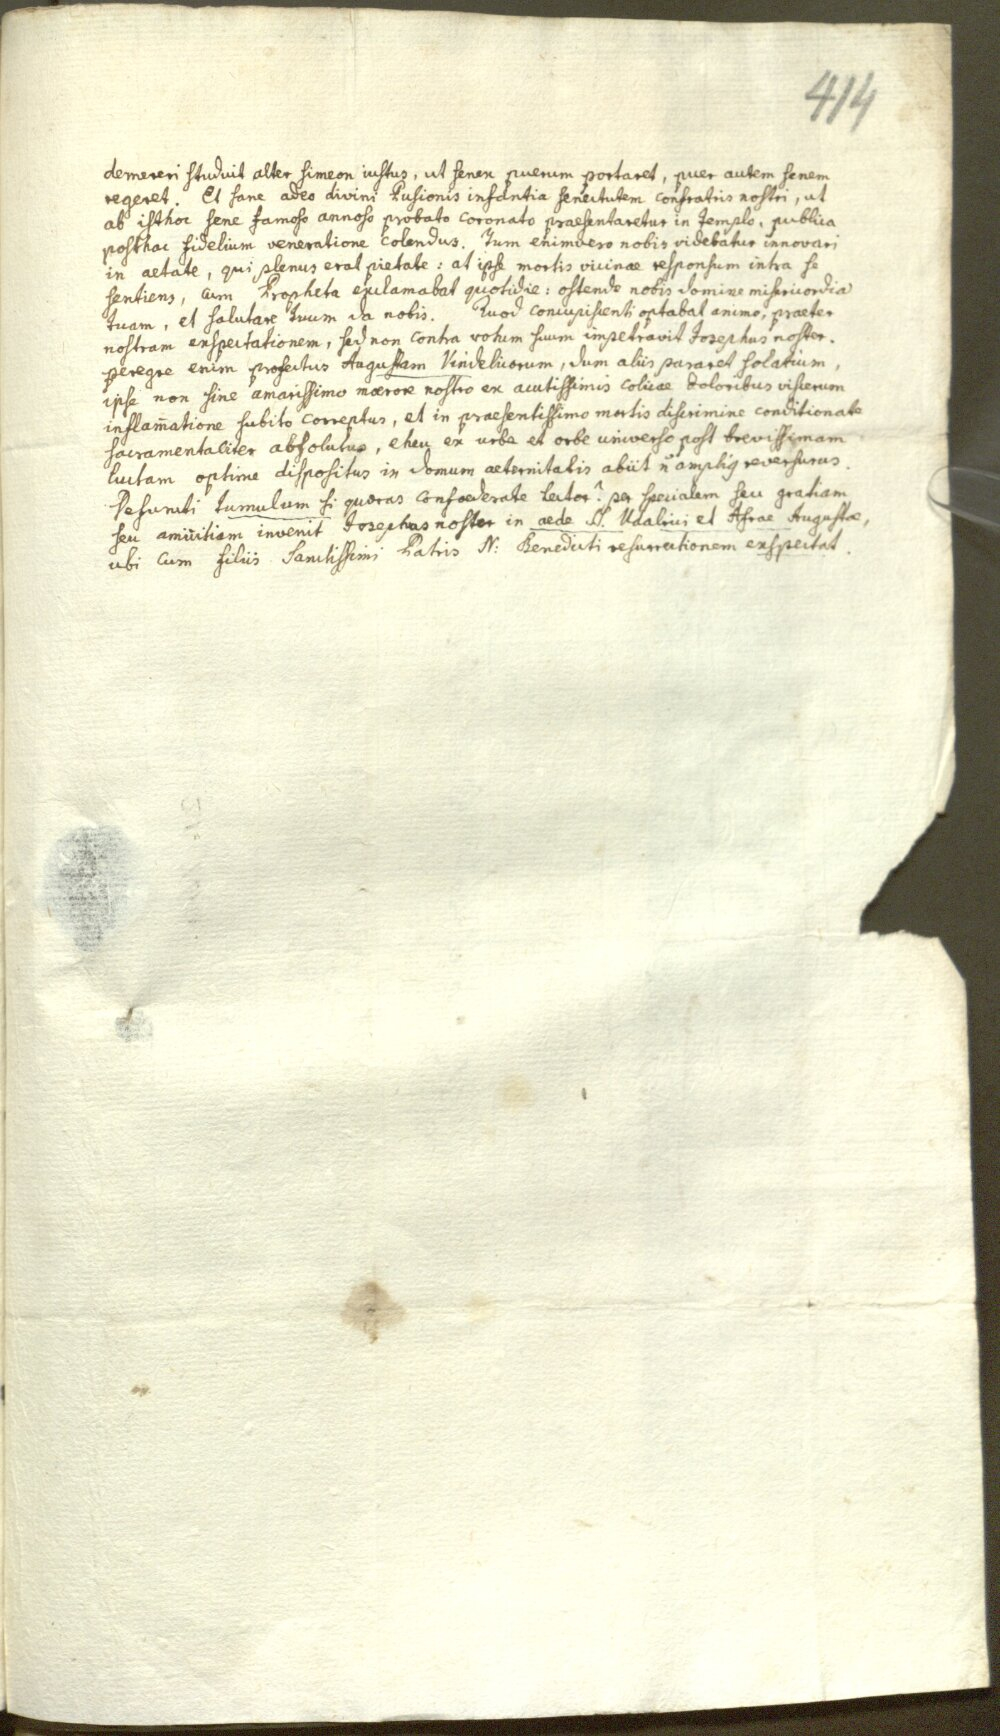 414
demereri studuit alter simeon iustus, ut senex puerum portaret, puer autem senem
regeret. Et sane adeo divini Pusionis infantia senectutem confratris nostri, ut
ab isthoc sene famoso annoso probato coronato praesentaretur in templo, publica
posthac fidelium veneratione colendus. Tum enimvero nobis videbatur innovari
in aetate, qui plenus erat pietate: at ipse mortis vicinae responsum intra se
sentiens, cum Propheta exclamabat quotidie: ostende nobis domine misericordia
tuam, et salutare tuum da nobis. Quod concupiscenti optabat animo, praeter
nostram exspectationem, sed non contra votum suum impetravit Josephus noster.
peregre enim profectus Augustam Vindelicorum, dum aliis pararet solatium,
ipse non sine amarissimo maerore nostro ex acutissimis colicae doloribus viscerum
inflam̄atione subito correptus, et in praesentissimo mortis discrimine conditionate
sacramentaliter absolutus, eheu ex urbe et orbe universo post brevissimam
luctam optime dispositus in domum aeternitatis abiit n̄ amplig reversurus.
Defuncti tumulum si quaeras confoederate Lector? per specialem seu gratiam
seu amicitiam invenit Josephus noster in aede S. Udalrici et Afrae Augustae,
ubi cum filiis Sanctissimi Patris N: Benedicti resurrectionem exspectat.